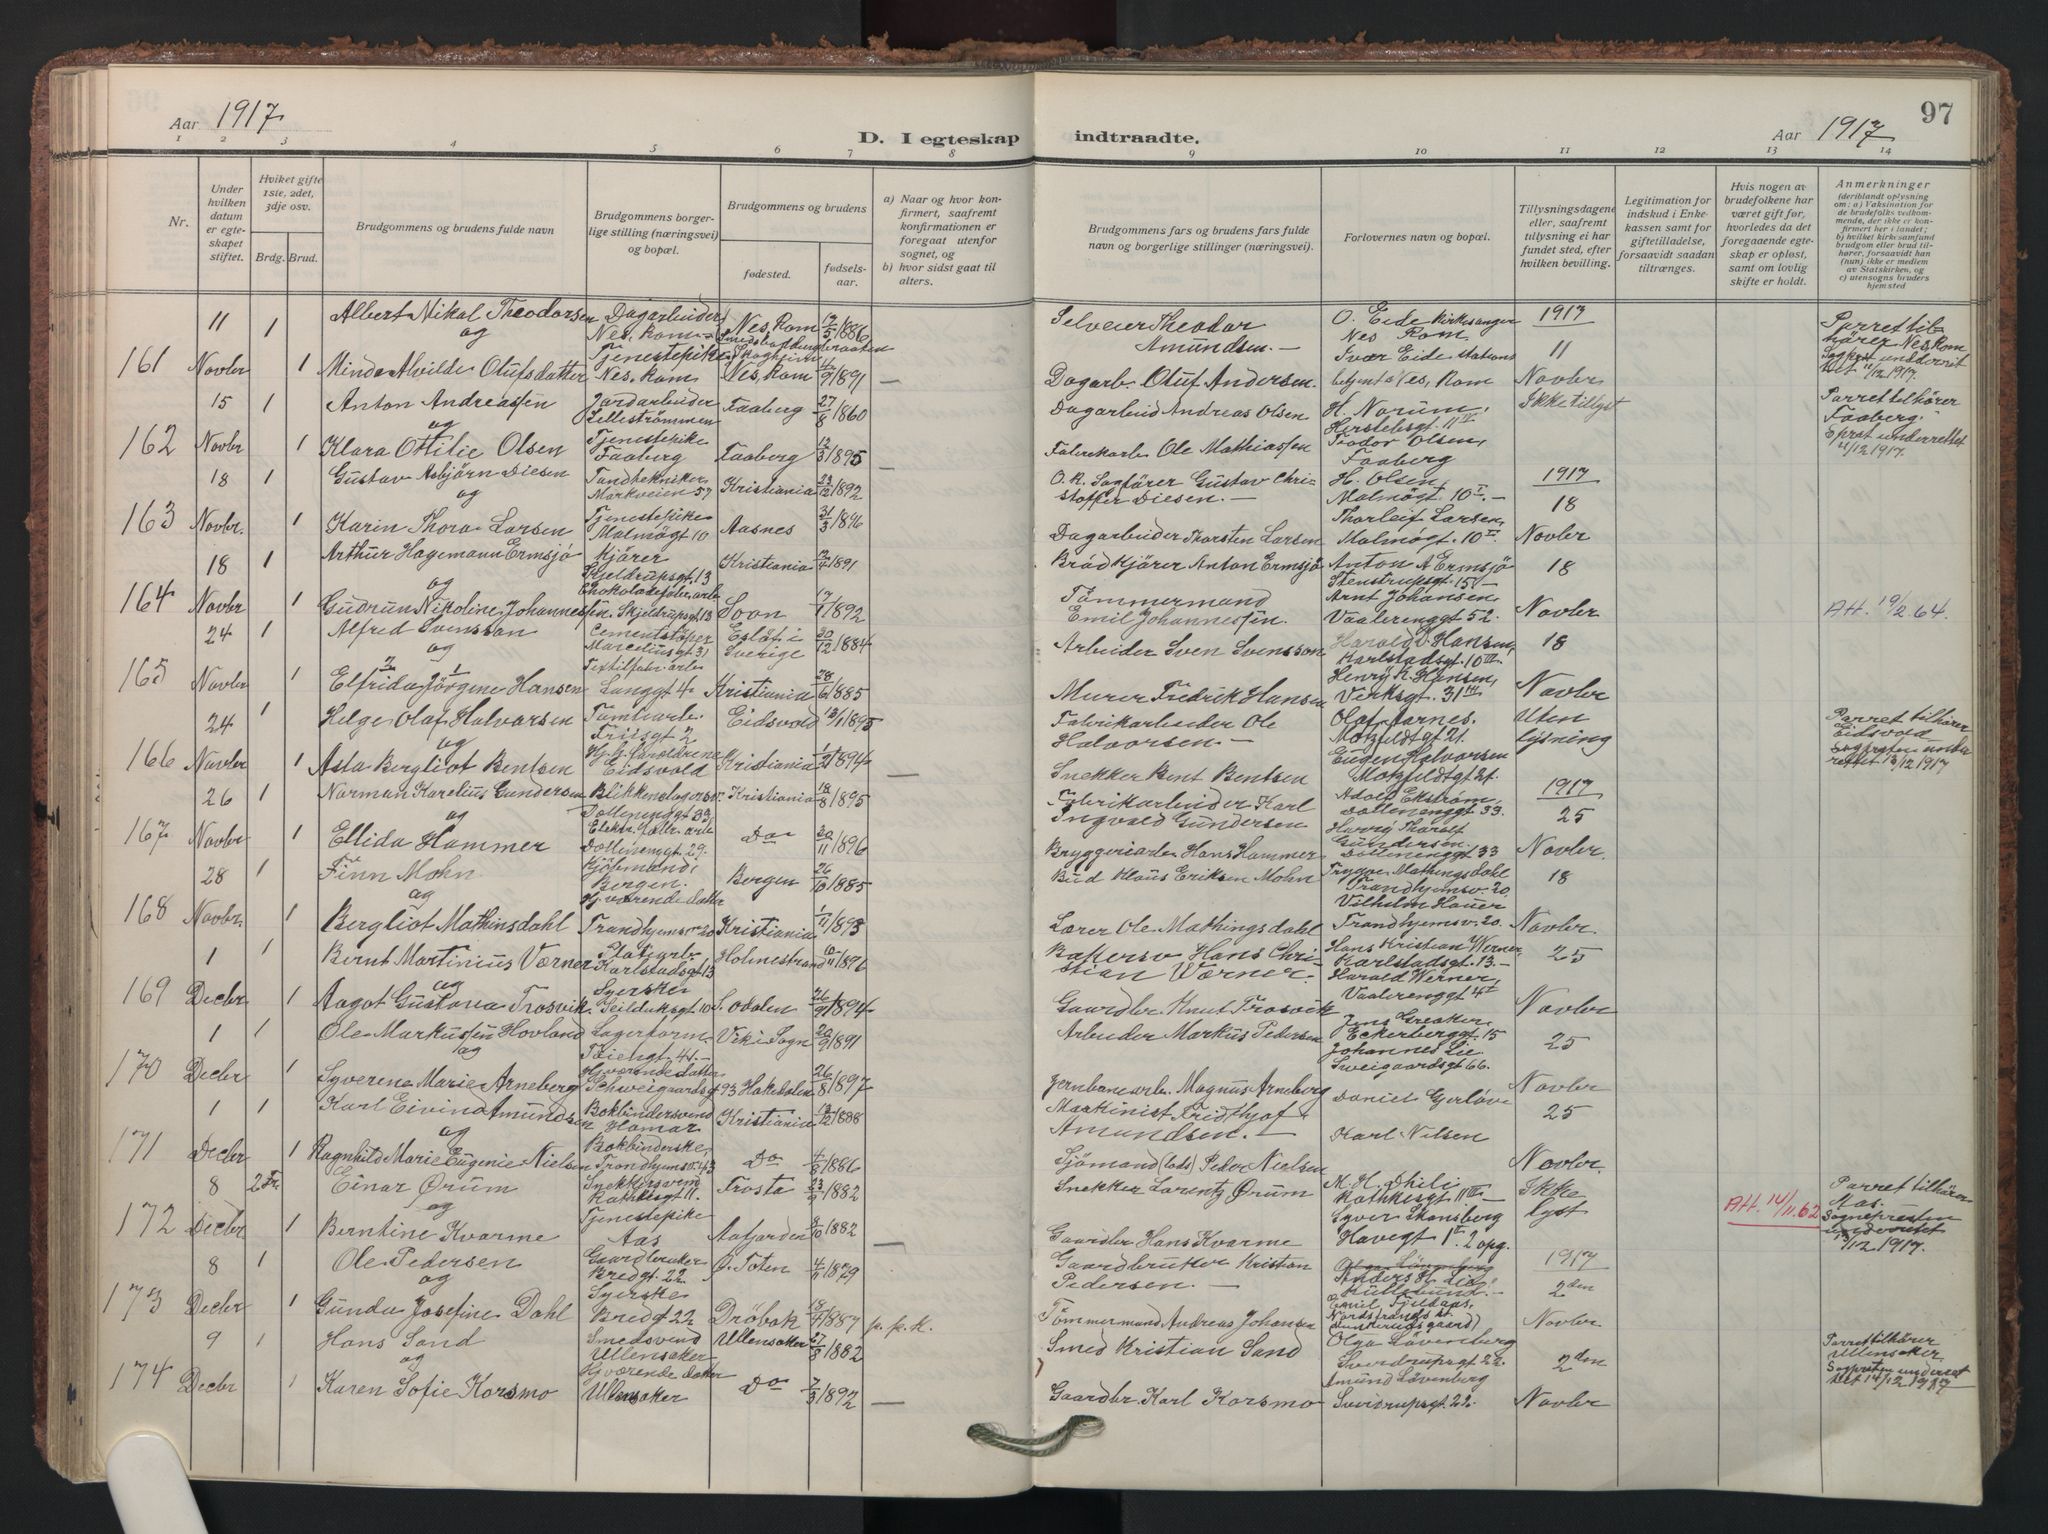 Aar 1917
D. I egteskap indtraadte.
Aar 1917
97
1 2 3 4 5 6 7 8 9 10 11 12 13 14
Nr.
Under hvilken datum er egteskapet stiftet.
Hviket gifte 1ste, 2det, 3dje osv.
Brdg. Brud.
Brudgommens og brudens fulde navn
Brudgommens borgerlige stilling (næringsvei) og bopæl.
Brudgommens og brudens
fødested.
fødselsaar.
a) Naar og hvor konfirmert, saafremt konfirmationen er foregaat utenfor sognet, og
b) hvor sidst gaat til alters.
Brudgommens fars og brudens fars fulde navn og borgerlige stillinger (næringsvei).
Forlovernes navn og bopæl.
Tillysningsdagene eller, saafremt tillysning ei har fundet sted, efter hvilken bevilling.
Legitimation for indskud i Enkekassen samt for giftetilladelse, forsaavidt saadan tiltrænges.
Hvis nogen av brudefolkene har været gift før, hvorledes da det foregaaende egteskap er opløst, samt om lovlig skifte er holdt.
Anmerkninger (deriblandt oplysning om: a) Vaksination for de brudefolks vedkommende, der ikke er konfirmert her i landet; b) hvilket kirkesamfund brudgom eller brud tilhører, forsaavidt han (hun) ikke er medlem av Statskirken, og c) utensogns bruders hjemsted
161 11 Novbr 1 1
Albert Nikol Theodorsen Dagarbeider Nes, Rom. Nes, Rom 1886
og
Minda Alvilde Olufsdatter Tjenestepike Nes, Rom. Nes, Rom 4/9 1891 —
Selveier Theodor Amundsen. —
Dagarb. Oluf Andersen
O. Eide kirkesanger Nes Rom.
Ivar Eide stationsbetjent Nes, Rom
1917 11 Novbr
Parret tilhører Nes, Rom
162 15 Novbr 1 1
Anton Andreassen Jordarbeider Lillestrømmen Faaberg 27/8 1860
og
Klara Ottilie Olsen Tjenestepike Faaberg Faaberg 1895 —
Dagarbeid Andreas Olsen
Fabrikarb. Ole Mathiassen
H. Norum,
Teodor Olsen, Faaberg
Ikke tillyst
Parret tilhører Faaberg.
163 18 Novbr. 1 1
Gustav Asbjörn Diesen Tandtekniker Markveien 57 Kristiania 23/12 1892
og
Karin Thora Larsen Tjenestepike Malmögt 10 Aasnes 31/3 1896
O.R. Sagförer Gustav Christoffer Diesen. —
Dagarbeider Thorsten Larsen
H. Olsen, Malmögt. 10 I. —
Thorleif Larsen, Malmögt. 10 I.
1917 18 Novbr
164 18 Novbr 1 1
Arthur Hagemann Ermsjö Kjörer Skjeldrupsgt. 13 Kristiania 1891
og
Gudrun Nikoline Johannessen. Chokoladefabr. arb. Skjeldrupsgt 13 Soon 1892
Brödkjörer Anton Ermsjö
Tömmermand Emil Johannessen
Anton A Ermsjö Stenstrupsgt. 15 —
Arnt Johansen, Vaalerenggt 52.
18 Novbr
AH. 19/2 64.
165 24 Novbr 1 1
Alfred Svensson Cementstöper Marceliusgt 31 Eslöf i Sverige 20/12 1884
og
Elfrida Jörgine Hansen Textilfabr. arb. Langgt 4. Kristiania 28/6 1885
Arbeider Sven Svensson
Murer Fredrik Hansen
Harald Hansen, Karlstadsgt. 10 III.
Henry K. Hansen, Verksgt. 31
18 Novbr
166 24 Novbr 1 1
Helge Olaf Halvorsen Tomtearb. Friisgt 2 Eidsvold 13/1 1895
og
Asta Bergliot Bentsen Eidsvold Kristiania 1894 —
Fabrikarbeider Ole Halvorsen. —
Snekker Bent Bentsen
Olaf Aarnes. Motzfeldtgt 21.
Eugen Halvorsen Motzfeldtgt 21.
Uten lysning
Parret tilhører Eidsvold
167 26 Novbr 1 1
Norman Karelius Gundersen Blikkenslagersv. Dölleneggt 33 Kristiania 18/8 1895
og
Ellida Hammer Dölleneggt. 29. Do 20/11 1896
Fabrikarbeider Karl Ingvald Gundersen
Bryggeriarb. Hans Hammer
Adolf Ekström, Dölleneggt. 33.
Harry Thoralf Gundersen. Dölleneggt 33
1917 25 Novbr.
168 28 Novbr 1 1
Finn Mohn Kjöbmand, Bergen. Bergen 26/10 1885
og
Bergliot Mathinsdahl Hj. værende datter Trondhjemsv. 20 Kristiania 1/11 1893
Bud Klaus Eriksen Mohn
Lærer Ole Mathingsdahl
Trygve Mathingsdahl Trondhjemsv. 20.
Vilhelm Hauer Trondhjemsv. 20.
18 Novbr.
169 1 Decbr 1 1
Bernt Martinius Værner Karlstadsgt 13 Holmestrand 10/11 1896
og
Aagot Gustava Trosvik Syerske Seilduksgt 10 S. Odalen 26/9 1894
Bakersv Hans Christian Værner. —
Gaardbr. Knut Trosvik
Hans Kristian Werner Karlstadsgt. 13. —
Harald Werner, Vaalerenggt 4 I
25 Novbr
170 1 Decbr 1 1
Ole Markussen Hovland Lagerform. Töiengt. 41. — Vik i Sogn 20/9 1891
og
Syverine Marie Arneberg Hj. værende datter Schweigaardsgt 93 Hakedalen 26/8 1897
Arbeider Markus Pedersen
Jernbanearb. Magnus Arneberg
Jens Greaker Eckerberggt. 15
Johannes Lie. Sveigaardsgt 66.
25 Novbr
171 1 Decbr 1 1
Karl Eivind Amundsen Bokbindersvend Hamar Kristiania 13/12 1888
og
Ragnhild Marie Eugenie Nielsen Bokbinderske, Trondhjemsv. 43 Do 1886
Maskinist Fridthjof Amundsen. —
Sjömand (lods) Peder Nielsen
Daniel Gerlöv
Karl Nilsen
25 Novbr.
172 8 Decbr 2 Fr. 1
Einar Ørum Snekkersvend Rathkesgt 11. Trosta 23/9 1882
og
Berntine Kvarme Tjenestepike Aas Aafjorden 8/10 1882 —
Snekker Lorentz Ørum
Gaardbr. Hans Kvarme
Rathkesgt 11 III —
Syver Skansberg Havegt 1 I. 2 opg.
Ikke lyst
AH. 14/11. 62
Parret tilhører Aas. Sognepresten 12 1917.
173 8 Decbr 1 1
Ole Pedersen Gaardbruker Bredgt. 22 Ø. Toten 4/11 1879
og
Gunda Josefine Dahl Syerske Bredgt 22 Dröbak 1887 p. p. k.
Gaardbruker Kristian Pedersen. —
Tömmermand Andreas Johansen
Emil Fjeldaas, Nordstrand st.
1917 2den Novbr
174 9 Decbr 1 1
Hans Sand Smedsvend Ullensaker Ullensaker 27/8 1882
og
Karen Sofie Korsmo Hj. værende datter Ullensaker Do 7/3 1892 —
Smed Kristian Sand
Gaardbr. Karl Korsmo
Olga Lövenberg Sverdrupsgt 22.
Amund Lövenberg Sverdrupsgt. 22.
2den Novbr
Parret tilhører Ullensaker. Sogpresten underrettet 14/12 1917